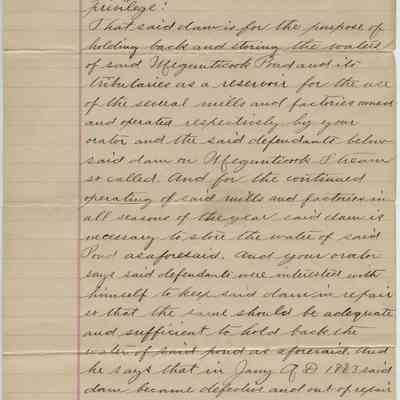 privilege:
That said dam is for the purpose of
holding back and storing the waters
of said Megunticook Pond and its
tributaries as a reservoir for the use
of the several mills and factories owned
and operated respectively by your
orator and the said defendants below
said dam on Megunticook Stream
so called. And for the continued
operating of said mills and factories in
all seasons of the year said dam is
necessary to store the water of said
Pond as aforesaid. And your orator
says said defendants were interested with
himself to keep said dam in repair
so that the same should be adequate
and sufficient to hold back the
water of said pond as aforesaid. And
he says that in Jany A D 1883 said
dam became defective and out of repair